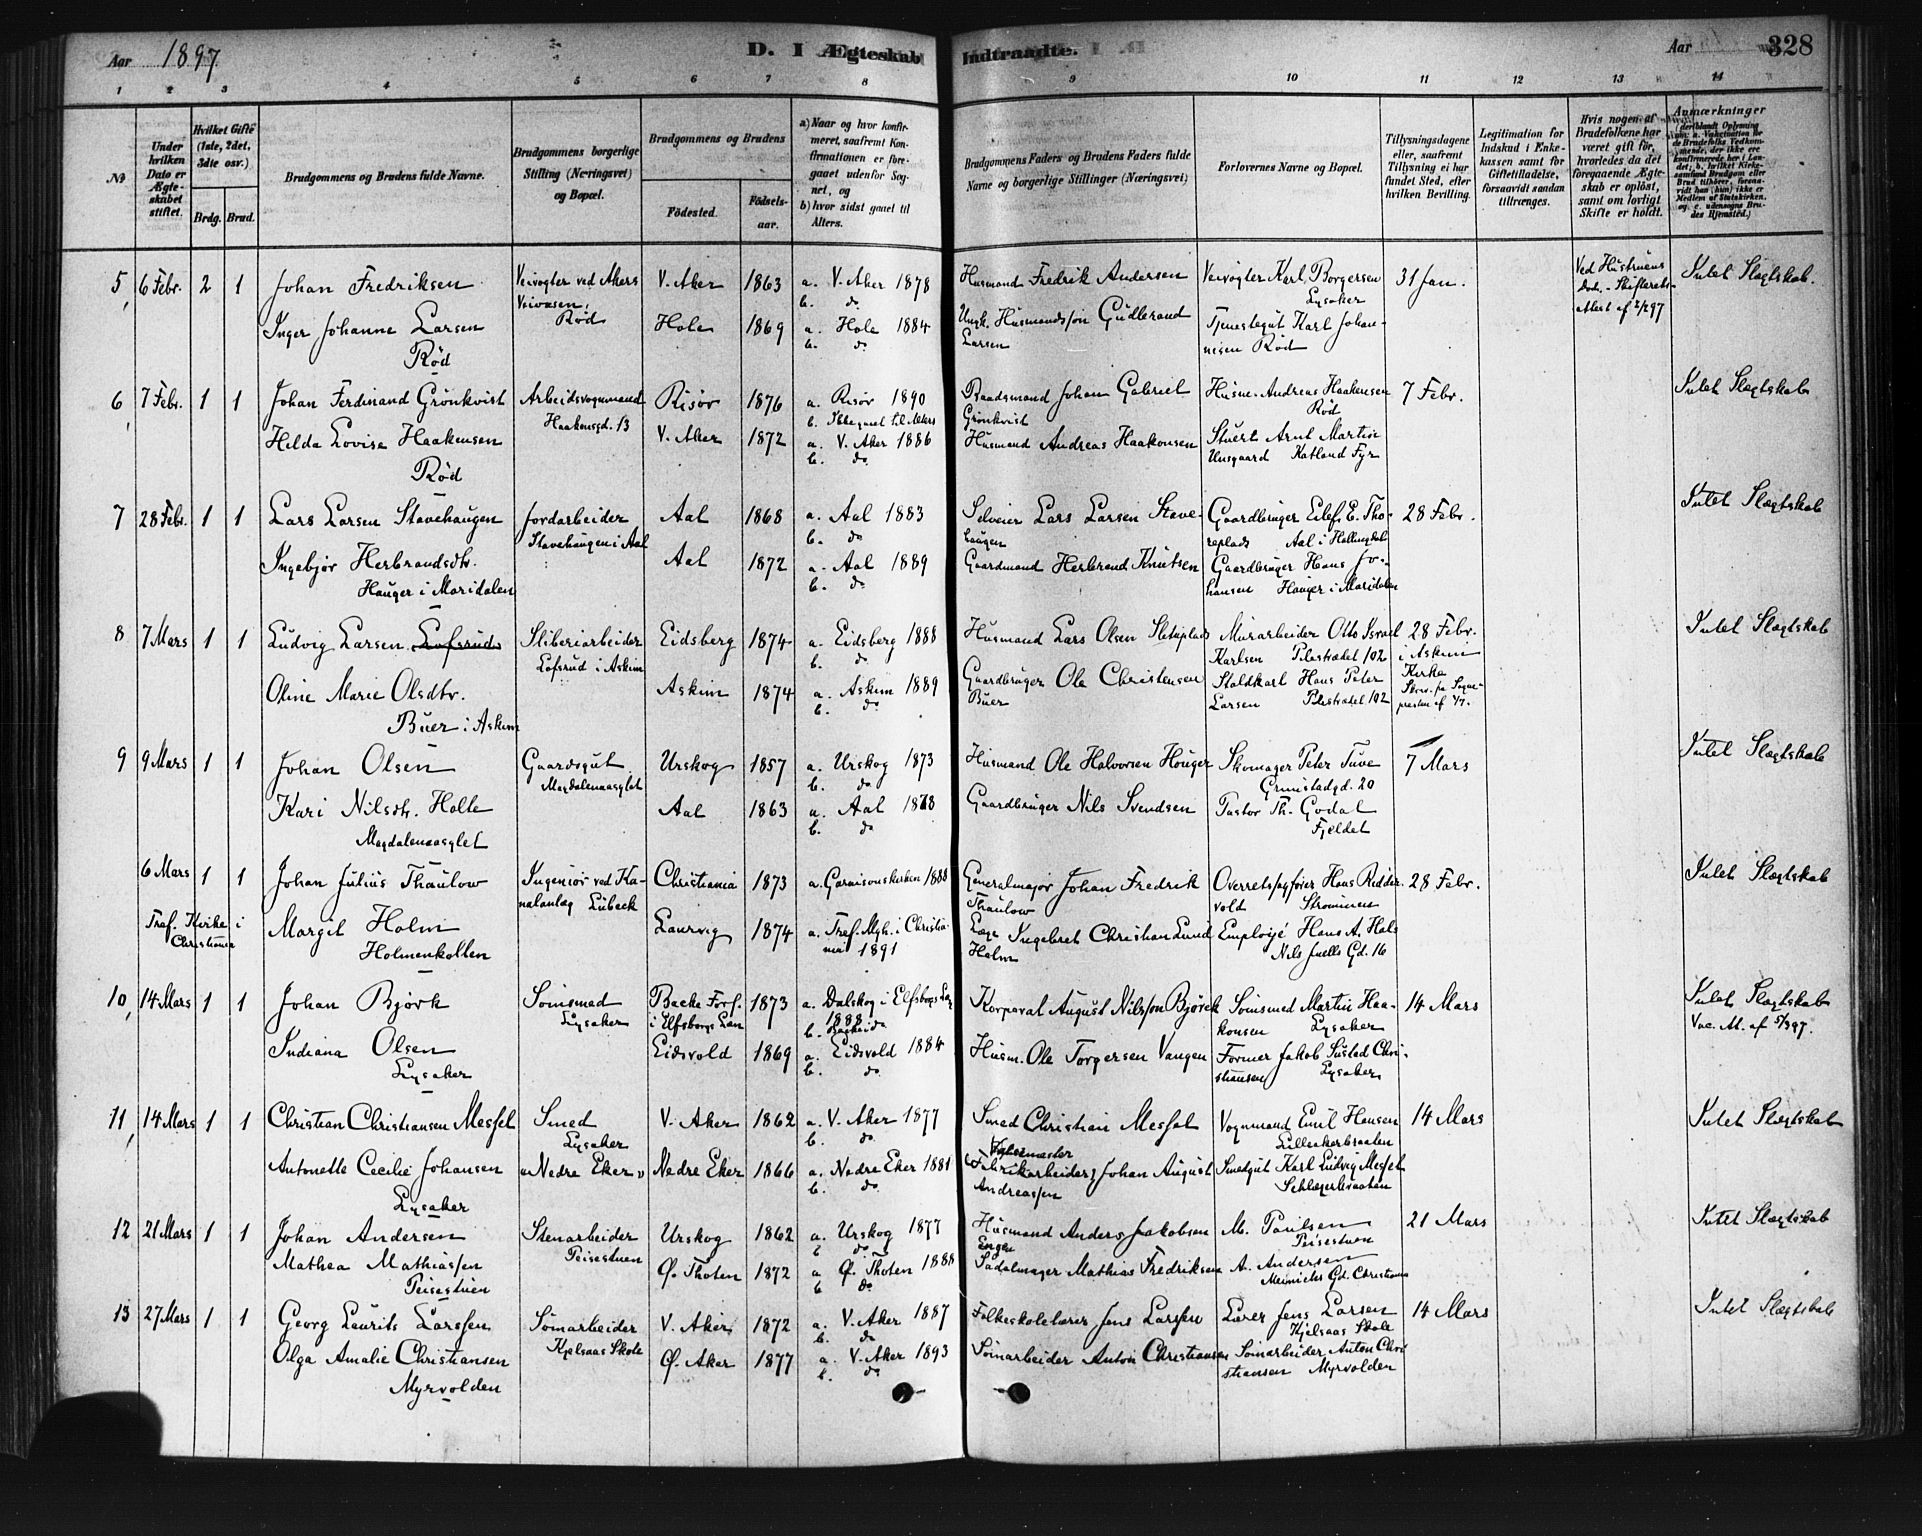 Aar 1897. D. I Ægteskab Indtraadte. Aar 328
1 2 3 4 5 6 7 8 9 10 11 12 13 14
No
Under hvilken Dato er Ægteskabet stiftet.
Hvilket Gifte (1ste, 2det, 3dte osv.)
Brdg. Brud.
Brudgommens og Brudens fulde Navne.
Brudgommens borgerlige Stilling (Næringsvei) og Bopæl.
Brudgommens og Brudens
Födested. Födselsaar.
a) Naar og hvor konfirmeret, saafremt Konfirmationen er foregaaet udenfor Sognet, og b) hvor sidst gaaet til Alters.
Brudgommens Faders og Brudens Faders fulde Navne og borgerlige Stillinger (Næringsvei)
Forlovernes Navne og Bopæl.
Tillysningsdagene eller, saafremt Tillysning ei har fundet Sted, efter hvilken Bevilling.
Legitimation for Indskud i Enkekassen samt for Giftetilladelse, forsaavidt saadan tiltrænges.
Hvis nogen af Brudefolkene har været gift før, hvorledes da det foregaaende Ægteskab er opløst, samt om lovligt Skifte er holdt.
Anmærkninger
5 6 Febr. 2 1 Johan Fredriksen Veivogter ved Akers Veivæsen, Rød V. Aker 1863 a. V. Aker 1878 b. do Husmand Fredrik Andersen Veivogter Karl Borgersen Lysaker 31 Jan. Ved Hustruens Død. - Skifterets- attest af 2/2 97 Intet Slægtskab.
Inger Johanne Larsen Rød Hole 1869 a. Hole 1884 b. do Ungk. Husmandssøn Gudbrand Larsen Tjenestegut Karl Johannisen Rød
6 7 Febr. 1 1 Johan Ferdinand Grönkvist Arbeidsvognmand Haakonsgd. 13 Risør 1876 a. Risør 1890 b. Ikke gaaet til Alters Baadsmand Johan Gabriel Grönkvist Husm. Andreas Haakensen Rød 7 Febr. Intet Slægtskab
Hilda Lovise Haakensen Rød V. Aker 1872 a. V. Aker 1886 b. do. Husmand Andreas Haakonsen Stuert Arnt Martin Unsgaard Katland Fyr
7 28 Febr. 1 1 Lars Larsen Stavehaugen Jordarbeider Stavehaugen i Aal Aal 1868 a. Aal 1883 b. do Selveier Lars Larsen Stavehaugen Gaardbruger Eilef E. Thoreplads Aal i Hallingdal 28 Febr. Intet Slægtskab
Ingebjør Herbrandsdtr. Hauger i Maridalen Aal 1872 a. Aal 1889 b. do. Gaardmand Herbrand Knutsen Gaardbruger Hans Johansen Hauger i Maridalen
8 7 Mars 1 1 Ludvig Larsen Lofsrud Sliberiarbeider Lofsrud i Askim Eidsberg 1874 a. Eidsberg 1888 b. do Husmand Lars Olsen Sletteplads Murarbeider Otto Israel Karlsen Pilestrædet 102 28 Febr. i Askim Kirke Intet Slægtskab
Oline Marie Olsdtr. Buer i Askim Askim 1874 a. Askim 1889 b. do Gaardbruger Ole Christensen Buer Staldkarl Hans Peter Larsen Pilestrædet 102
9 9 Mars 1 1 Johan Olsen Gaardsgut Magdalenaasylet Urskog 1857 a. Urskog 1873 b. do Husmand Ole Halvorsen Houger Skomager Peter Tuve Grimstadgd. 20 7 Mars Intet Slægtskab
Kari Nilsdtr. Holte Magdalenaasylet Aal 1863 a. Aal 1878 b. do Gaardbruger Nils Svendsen Pastor Th. Godal Fjeldet
6 Mars 1 1 Johan Julius Thaulow Ingeniør ved Kanalanlæg Lübeck Christiania 1873 a. Garnisonskirken 1888 Generalmajor Johan Fredrik Thaulow Overretssagfører Hans Riddervold Strømmen 28 Febr. Intet Slægtskab
Tref. Kirke i Christiania Margit Holm Holmenkollen Laurvig 1874 a. Tref. Mgh. i Christiania 1891 Læge Ingebret Christian Lund Holm Employé Hans A. Hals Nils Juells Gd. 16
10 14 Mars 1 1 Johan Bjørk Sömsmed Lysaker Backe Fors. i Elfsborgs Län 1873 a. Dalskog i Elfsborgs Län 1888 b. Backe do Korporal August Nilsson Bjørck Sömsmed Martin Haakonsen Lysaker 14 Mars Intet Slægtskab Vac. At. af 5/3 97.
Indiana Olsen Lysaker Eidsvold 1869 a. Eidsvold 1884 b. do. Husm. Ole Torgersen Vangen Former Jakob Sustad Christiansen Lysaker
11 14 Mars 1 1 Christian Christiansen Messel Smed Lysaker V. Aker 1862 a. V. Aker 1877 b. do. Smed Christian Messel Vognmand Emil Hansen Lilleakerbraaten 14 Mars Intet Slægtskab
Antonette Cecilie Johansen Lysaker "Nedre Eker" Nedre Eker 1866 a. Nedre Eker 1881 b. do. Fabrikarbeider Johan August Andreassen Smedgut Karl Ludvig Messel
12 21 Mars 1 1 Johan Andersen Stenarbeider Peisestuen Urskog 1862 a. Urskog 1877 b do Husmand Anders Jakobsen Engen M. Paulsen Peisestuen 21 Mars Intet Slægtskab
Mathea Mathiassen Peisestuen Ø. Thoten 1872 a Ø. Thoten 1888 b do Sadelmager Mathias Fredriksen A. Andersen Christiania
13 27 Mars 1 1 Georg Laurits Larssen Sömarbeider Kjelsaas Skole V. Aker 1872 a. V. Aker 1887 b. do Folkeskolelærer Jens Larssen Lærer Jens Larsen Kjelsaas Skole 14 Mars Intet Slægtskab
Olga Amalie Christiansen Myrvolden Ø. Aker 1877 a. V. Aker 1893 b. do Sömarbeider Anton Christiansen Sömarbeider Anton Christiansen Myrvolden